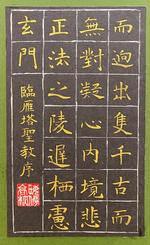 而迥出隻千古而
無對凝心内境悲
正法之陵遲栖慮
玄門
臨雁塔聖教序